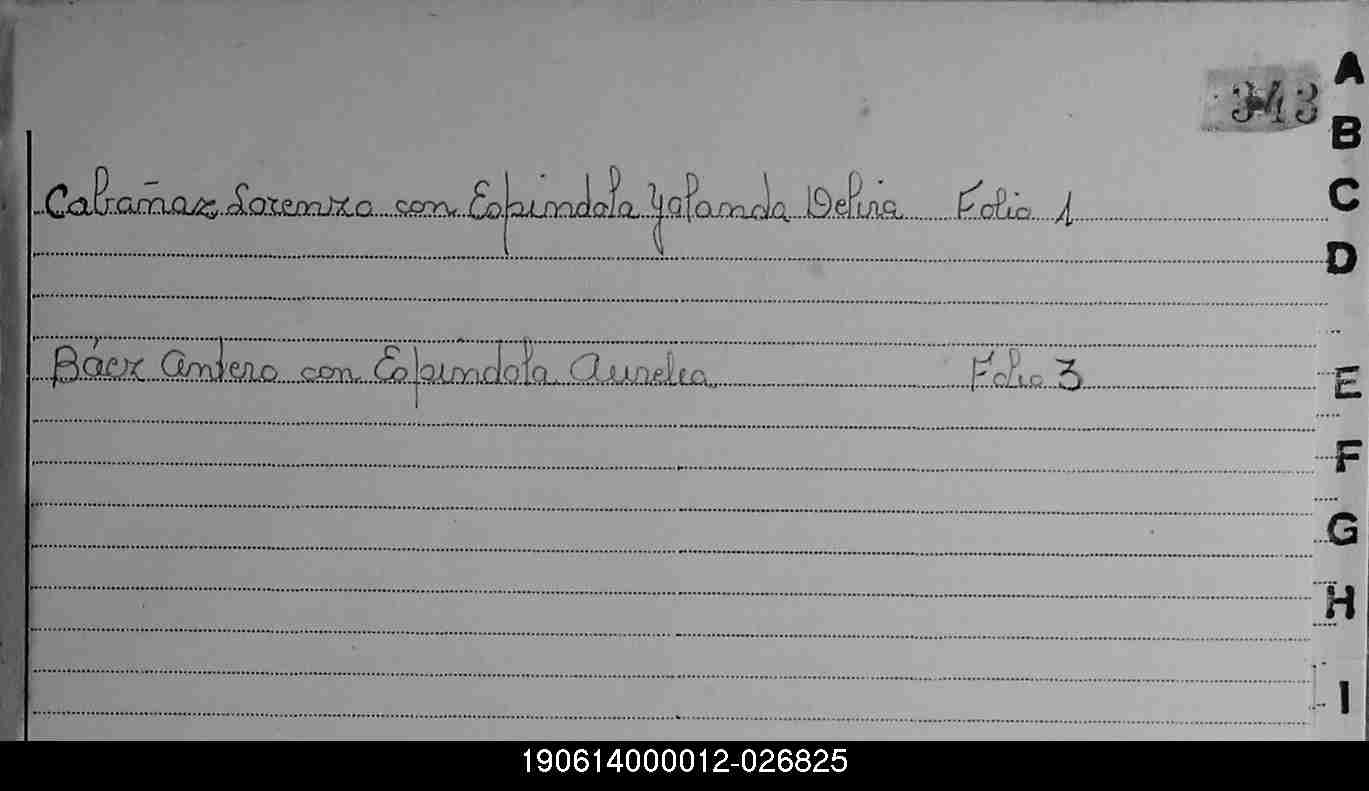 343
A
B
Cabañaz Lorenzo con Espindola Yolanda Delira Folio 1
C
D
Báez Antero con Espindola Aurelia Folio 3
E
F
G
H
I
190614000012-026825